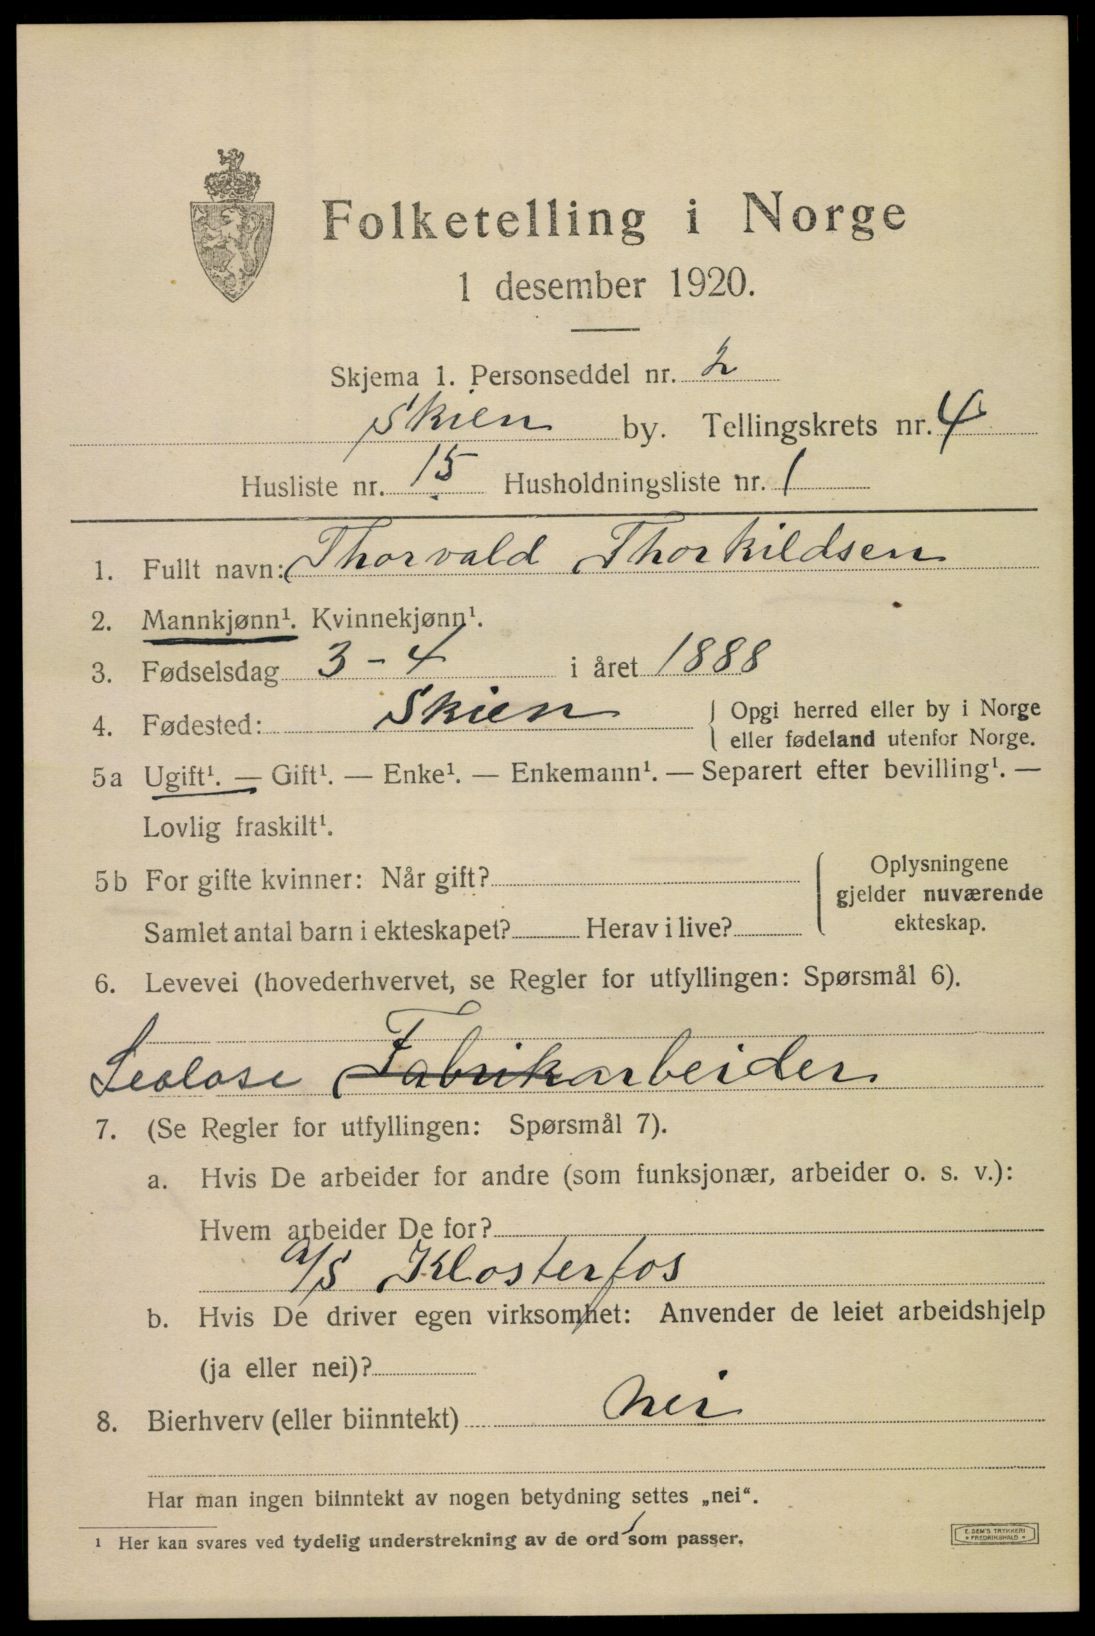 Folketelling i Norge
1 desember 1920.
Skjema 1. Personseddel nr. 2
Skien by. Tellingskrets nr. 4
Husliste nr. 15 Husholdningsliste nr. 1
1. Fullt navn: Thorvald Thorkildsen
2. Mannkjønn¹. Kvinnekjønn¹.
3. Fødselsdag 3 - 4 i året 1888
4. Fødested: Skien
Opgi herred eller by i Norge
eller fødeland utenfor Norge.
5a Ugift¹. — Gift¹. — Enke¹. — Enkemann¹. — Separert efter bevilling¹. —
Lovlig fraskilt¹.
5b For gifte kvinner: Når gift?
Samlet antal barn i ekteskapet? Herav i live?
Oplysningene
gjelder nuværende
ekteskap.
6. Levevei (hovederhvervet, se Regler for utfyllingen: Spørsmål 6).
Fabrikarbeider
7. (Se Regler for utfyllingen: Spørsmål 7).
a. Hvis De arbeider for andre (som funksjonær, arbeider o. s. v.):
Hvem arbeider De for?
A/S Klosterfos
b. Hvis De driver egen virksomhet: Anvender de leiet arbeidshjelp
(ja eller nei)?
8. Bierhverv (eller biinntekt) nei
Har man ingen biinntekt av nogen betydning settes „nei“.
¹ Her kan svares ved tydelig understrekning av de ord som passer.
E. SEM'S TRYKKERI
FREDRIKSHALD